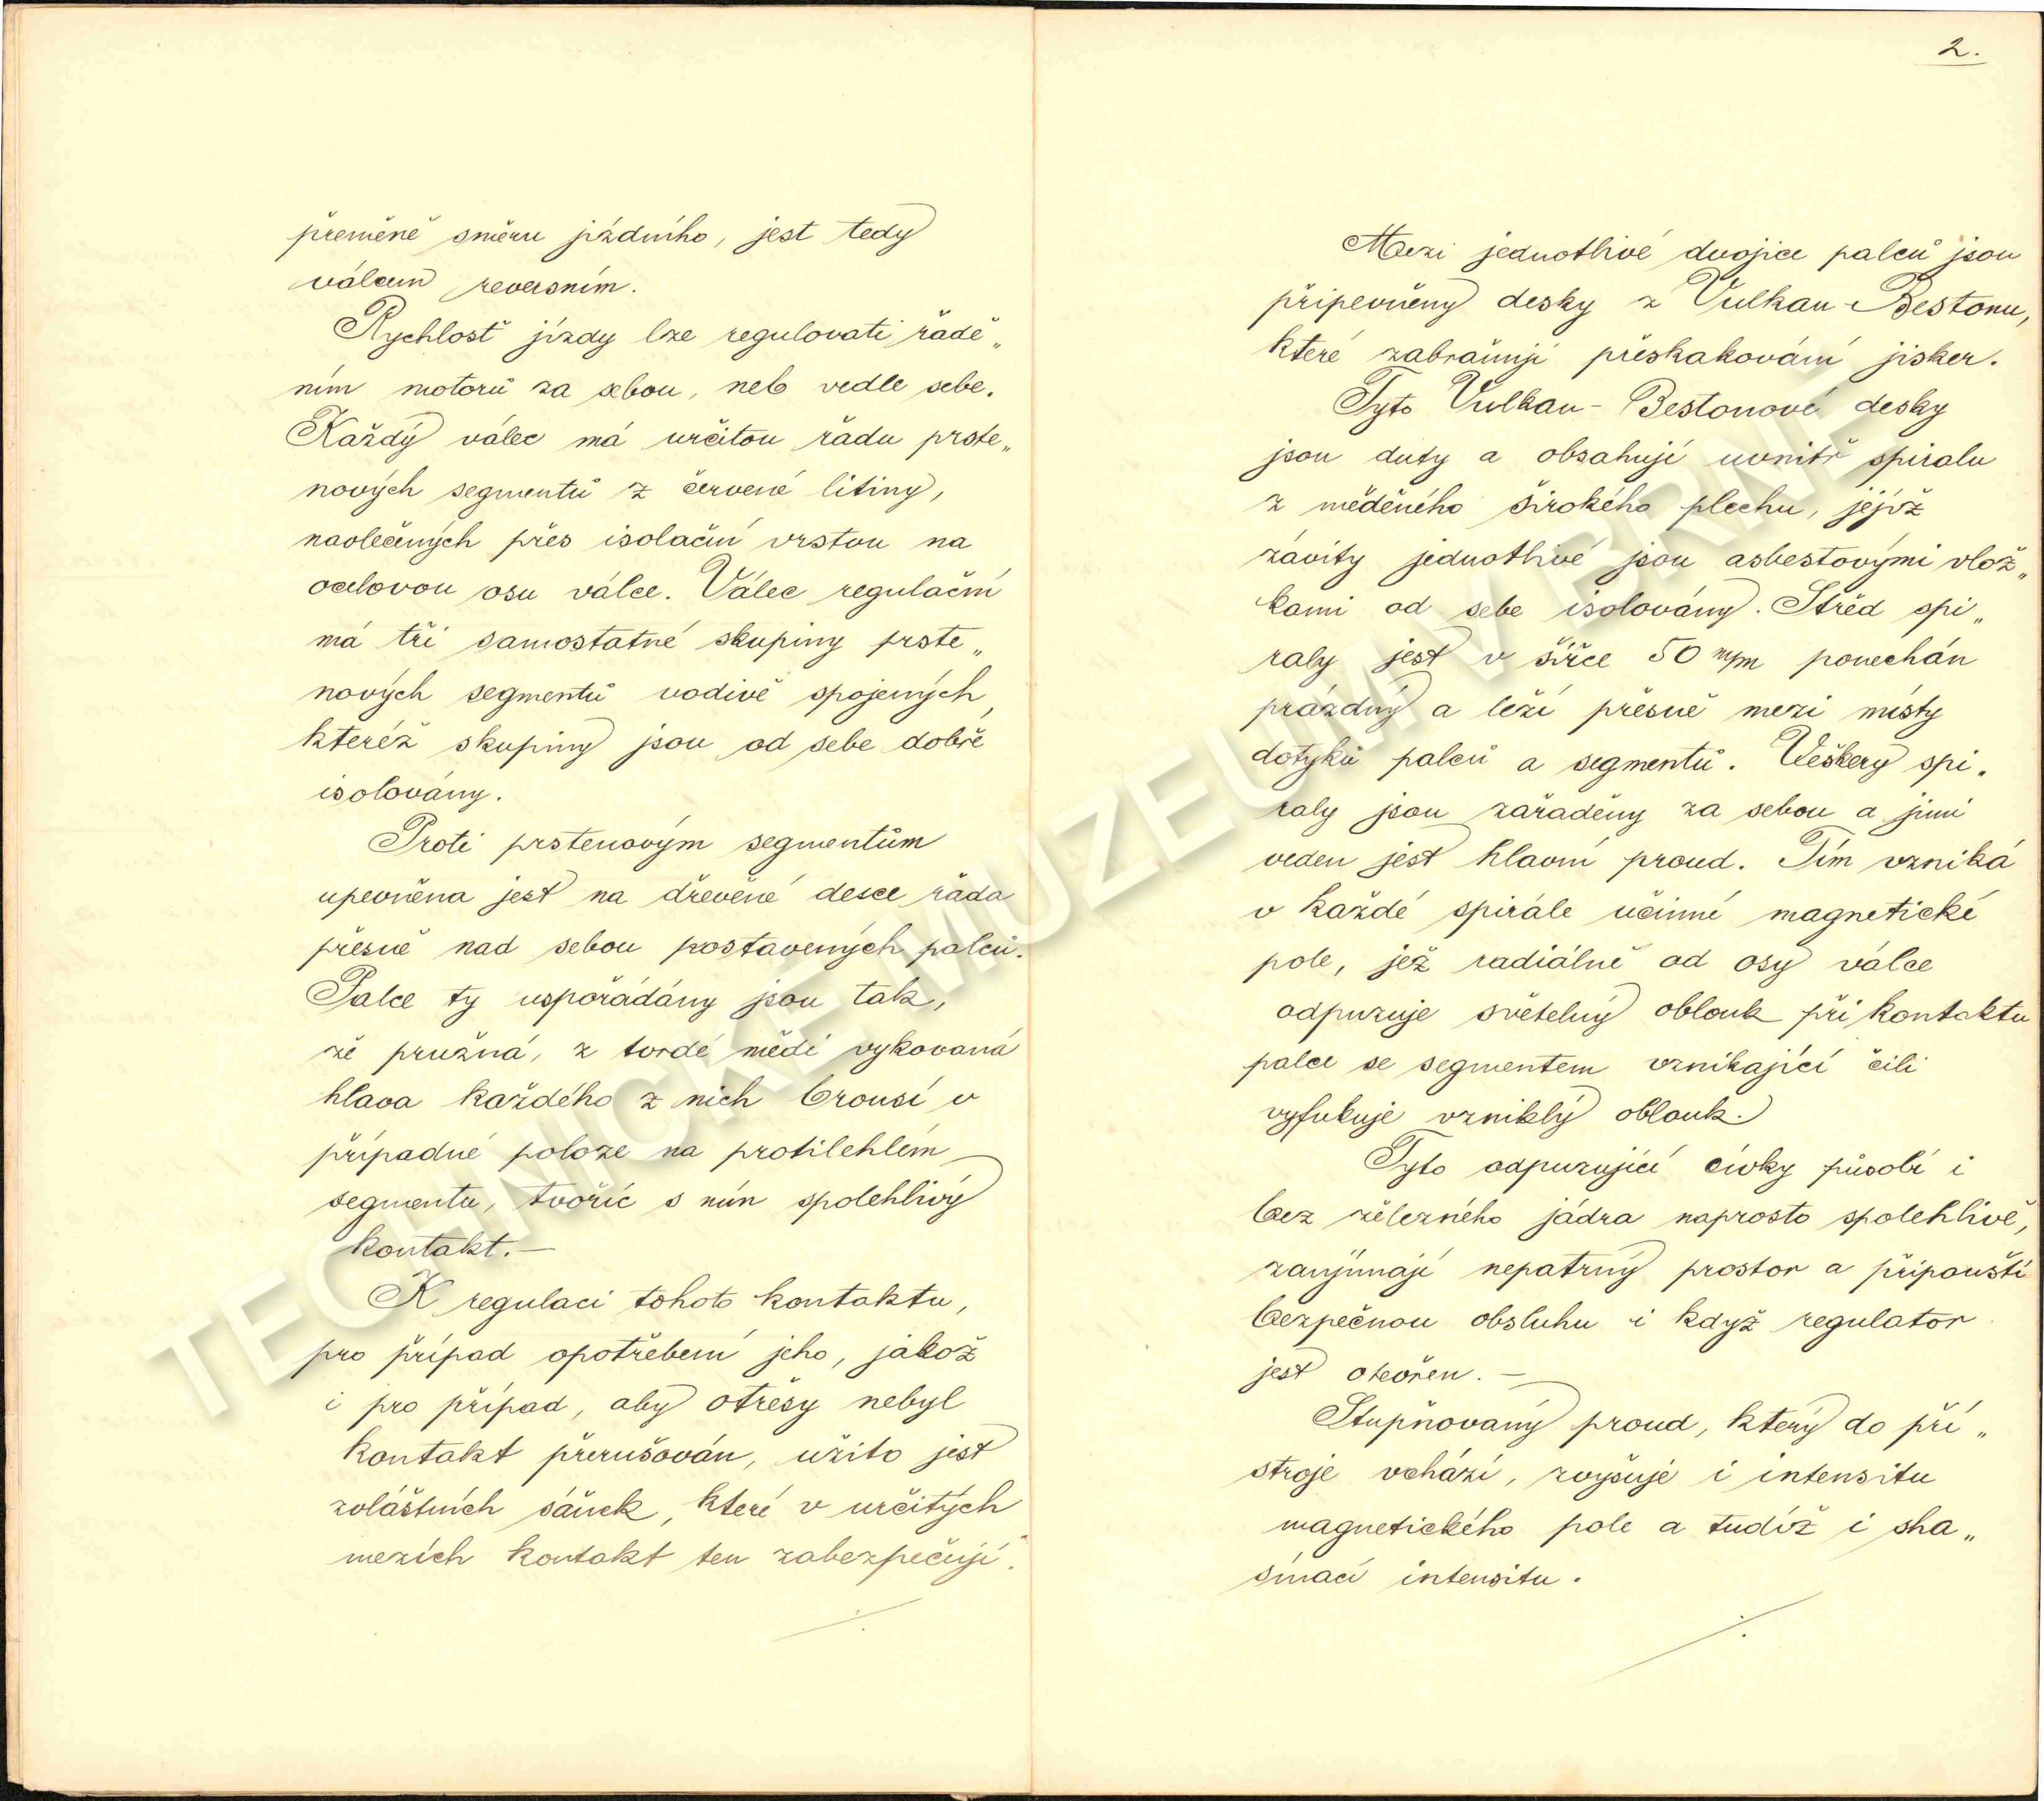 přeměně směru jízdního, jest tedy
válcem reversním.
Rychlosť jízdy lze regulovati řadě„
ním motorů za sebou, neb vedle sebe.
Každý válec má určitou řadu prste„
nových segmentů z červené litiny,
navlečených přes isolační vrstvu na
ocelovou osu válce. Válec regulační
má tři samostatné skupiny prste„
nových segmentů vodivě spojených,
kteréž skupiny jsou od sebe dobře
isolovány.
Proti prstenovým segmentům
upevněna jest na dřevěné desce řada
přesně nad sebou postavených palců.
Palce ty uspořádány jsou tak,
že pružná, z tvrdé mědi vykovaná
hlava každého z nich brousí v
případné poloze na protilehlém
segmentu, tvoříc s ním spolehlivý
kontakt.—
K regulaci tohoto kontaktu,
pro případ opotřebení jeho, jakož
i pro případ, aby otřesy nebyl
kontakt přerušován, užito jest
zvláštních sáněk, které v určitých
mezích kontakt ten zabezpečují.
2.
Mezi jednotlivé dvojice palců jsou
připevněny desky z Vulkan-Bestonu,
které zabraňují přeskakování jisker.
Tyto Vulkan-Bestonové desky
jsou duty a obsahují uvnitř spiralu
z měděného širokého plechu, jejíž
závity jednotlivé jsou asbestovými vlož„
kami od sebe isolovány. Střed spi„
raly jest v šířce 50 m/m ponechán
prázdný a leží přesně mezi místy
dotyků palců a segmentů. Veškery spi„
raly jsou zařaděny za sebou a jimi
veden jest hlavní proud. Tím vzniká
v každé spirále účinné magnetické
pole, jež radiálně od osy válce
odpuzuje světelný oblouk při kontaktu
palce se segmentem vznikající čili
vyfukuje vzniklý oblouk.
Tyto odpuzující cívky působí i
bez železného jádra naprosto spolehlivě,
zaujímají nepatrný prostor a připouští
bezpečnou obsluhu i když regulator
jest otevřen.—
Stupňovaný proud, který do pří„
stroje vchází, zvyšuje i intensitu
magnetického pole a tudíž i sha„
šínací intensitu.
TECHNICKÉ MUZEUM V BRNĚ